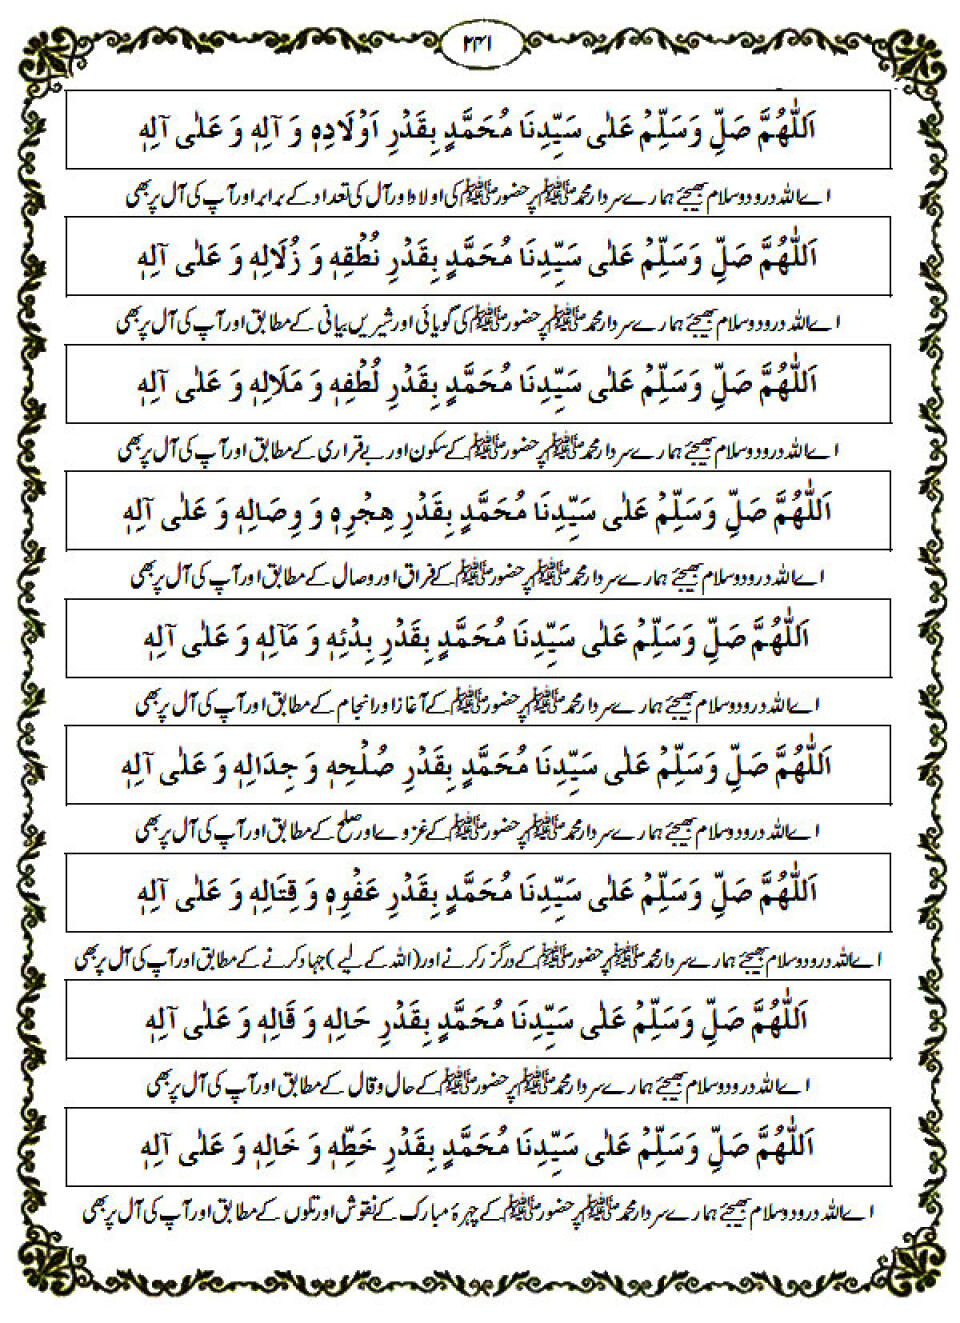 ۲۴۱
اَللّٰهُمَّ صَلِّ وَسَلِّمْ عَلٰى سَيِّدِنَا مُحَمَّدٍ بِقَدْرِ اَوْلَادِهٖ وَ آلِهٖ وَ عَلٰى آلِهٖ
اے اللہ درود و سلام بھیجئے ہمارے سردار محمد ﷺ پر حضور ﷺ کی اولاد اور آل کی تعداد کے برابر اور آپ کی آل پر بھی
اَللّٰهُمَّ صَلِّ وَسَلِّمْ عَلٰى سَيِّدِنَا مُحَمَّدٍ بِقَدْرِ نُطْقِهٖ وَ زُلَالِهٖ وَ عَلٰى آلِهٖ
اے اللہ درود و سلام بھیجئے ہمارے سردار محمد ﷺ پر حضور ﷺ کی گویائی اور شیریں بیانی کے مطابق اور آپ کی آل پر بھی
اَللّٰهُمَّ صَلِّ وَسَلِّمْ عَلٰى سَيِّدِنَا مُحَمَّدٍ بِقَدْرِ لُطْفِهٖ وَ مَلَالِهٖ وَ عَلٰى آلِهٖ
اے اللہ درود و سلام بھیجئے ہمارے سردار محمد ﷺ پر حضور ﷺ کے سکون اور بے قراری کے مطابق اور آپ کی آل پر بھی
اَللّٰهُمَّ صَلِّ وَسَلِّمْ عَلٰى سَيِّدِنَا مُحَمَّدٍ بِقَدْرِ هِجْرِهٖ وَ وِصَالِهٖ وَ عَلٰى آلِهٖ
اے اللہ درود و سلام بھیجئے ہمارے سردار محمد ﷺ پر حضور ﷺ کے فراق اور وصال کے مطابق اور آپ کی آل پر بھی
اَللّٰهُمَّ صَلِّ وَسَلِّمْ عَلٰى سَيِّدِنَا مُحَمَّدٍ بِقَدْرِ بِدْئِهٖ وَ مَآلِهٖ وَ عَلٰى آلِهٖ
اے اللہ درود و سلام بھیجئے ہمارے سردار محمد ﷺ پر حضور ﷺ کے آغاز اور انجام کے مطابق اور آپ کی آل پر بھی
اَللّٰهُمَّ صَلِّ وَسَلِّمْ عَلٰى سَيِّدِنَا مُحَمَّدٍ بِقَدْرِ صُلْحِهٖ وَ جِدَالِهٖ وَ عَلٰى آلِهٖ
اے اللہ درود و سلام بھیجئے ہمارے سردار محمد ﷺ پر حضور ﷺ کے غزوے اور صلح کے مطابق اور آپ کی آل پر بھی
اَللّٰهُمَّ صَلِّ وَسَلِّمْ عَلٰى سَيِّدِنَا مُحَمَّدٍ بِقَدْرِ عَفْوِهٖ وَ قِتَالِهٖ وَ عَلٰى آلِهٖ
اے اللہ درود و سلام بھیجئے ہمارے سردار محمد ﷺ پر حضور ﷺ کے درگزر کرنے اور (اللہ کے لیے) جہاد کرنے کے مطابق اور آپ کی آل پر بھی
اَللّٰهُمَّ صَلِّ وَسَلِّمْ عَلٰى سَيِّدِنَا مُحَمَّدٍ بِقَدْرِ حَالِهٖ وَ قَالِهٖ وَ عَلٰى آلِهٖ
اے اللہ درود و سلام بھیجئے ہمارے سردار محمد ﷺ پر حضور ﷺ کے حال و قال کے مطابق اور آپ کی آل پر بھی
اَللّٰهُمَّ صَلِّ وَسَلِّمْ عَلٰى سَيِّدِنَا مُحَمَّدٍ بِقَدْرِ خَطِّهٖ وَ خَالِهٖ وَ عَلٰى آلِهٖ
اے اللہ درود و سلام بھیجئے ہمارے سردار محمد ﷺ پر حضور ﷺ کے چہرۂ مبارک کے نقوش اور تلوں کے مطابق اور آپ کی آل پر بھی